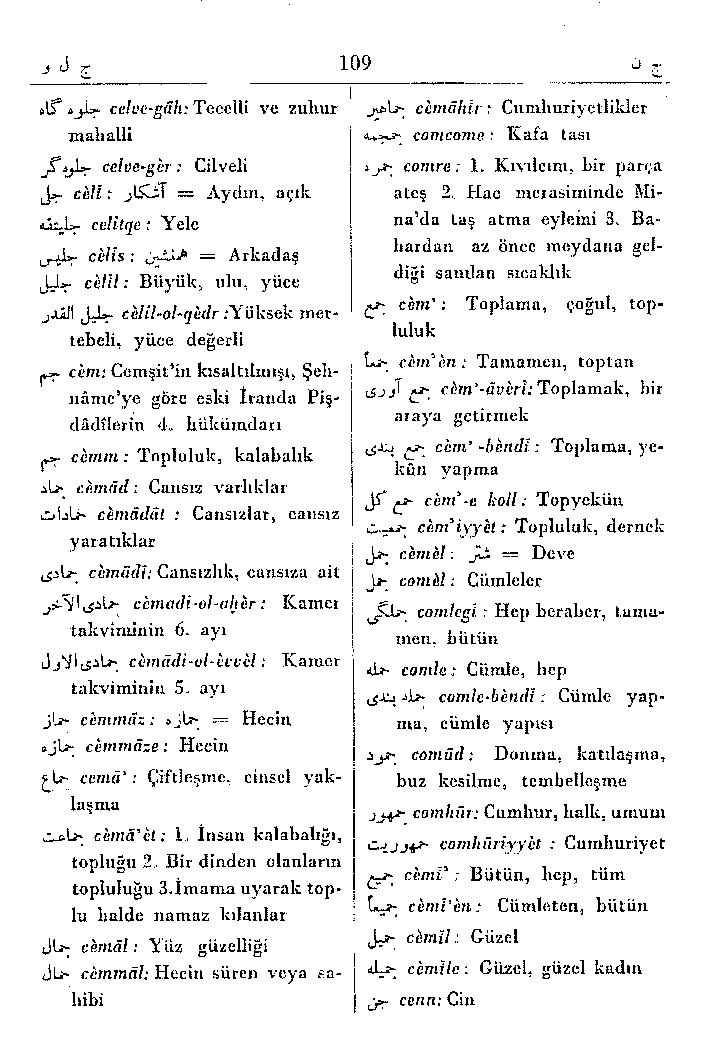 ج ل و
109
ج ن
جلوه گاه celve-gāh: Tecelli ve zuhur
mahalli
جلوه‌گر celve-gèr : Cilveli
جلی cèlī : آشکار = Aydın, açık
جلیتقه celitqe : Yele
جلیس cèlīs : همنشین = Arkadaş
جلیل cèlīl : Büyük, ulu, yüce
جلیل القدر cèlīl-ol-qèdr :Yüksek mer-
tebeli, yüce değerli
جم cèm: Cemşit'in kısaltılmışı, Şeh-
nâme'ye göre eski İranda Piş-
dâdîlerin 4. hükümdarı
جم cèmm : Topluluk, kalabalık
جماد cèmād : Cansız varlıklar
جمادات cèmādāt : Cansızlar, cansız
yaratıklar
جمادی cèmādī: Cansızlık, cansıza ait
جمادی‌الآخر cèmadi-ol-aḫèr : Kamer
takviminin 6. ayı
جمادی‌الاول cèmādi-ol-èvvèl : Kamer
takviminin 5. ayı
جماز cèmmāz : جمازه = Hecin
جمازه cèmmāze : Hecin
جماع cemā' : Çiftleşme, cinsel yak-
laşma
جماعت cèmā'èt : 1. İnsan kalabalığı,
topluğu 2. Bir dinden olanların
topluluğu 3.İmama uyarak top-
lu halde namaz kılanlar
جمال cèmāl : Yüz güzelliği
جمال cèmmāl: Hecin süren veya sa-
hibi
جماهیر cèmāhīr : Cumhuriyetlikler
جمجمه comcome : Kafa tası
جمره comre : 1. Kıvılcım, bir parça
ateş 2. Hac merasiminde Mi-
na'da taş atma eyleini 3. Ba-
hardan az önce meydana gel-
diği sanılan sıcaklık
جمع cèm' : Toplama, çoğul, top-
luluk
جمعاً cèm'èn : Tamamen, toptan
جمع آوری cèm'-āvèrī: Toplamak, bir
araya getirmek
جمع بندی cèm'-bèndī : Toplama, ye-
kûn yapma
جمع کل cèm'-e koll : Topyekün
جمعیت cèm'iyyèt : Topluluk, dernek
جمل cèmèl : شتر = Deve
جمل comèl : Cümleler
جملگی comlegi : Hep beraber, tama-
men, bütün
جمله comle : Cümle, hep
جمله بندی comle-bèndī : Cümle yap-
ma, cümle yapısı
جمود comūd : Donma, katılaşma,
buz kesilme, tembelleşme
جمهور comhūr: Cumhur, halk, umum
جمهوریت comhūriyyèt : Cumhuriyet
جمیع cèmī' : Bütün, hep, tüm
جمیعاً cèmī'èn : Cümleten, bütün
جمیل cèmīl : Güzel
جمیله cèmīle : Güzel, güzel kadın
جن cenn: Cin